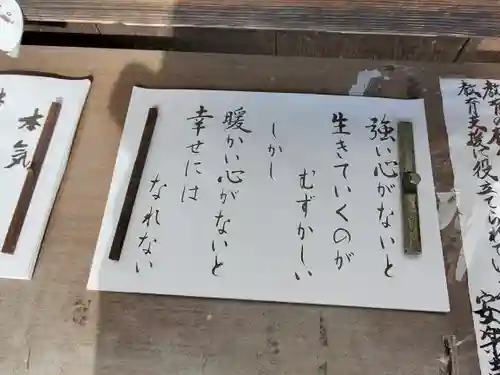 教育支援に役立てられています
強い心がないと
生きていくのが
むずかしい
しかし
暖かい心がないと
幸せには
なれない
本気